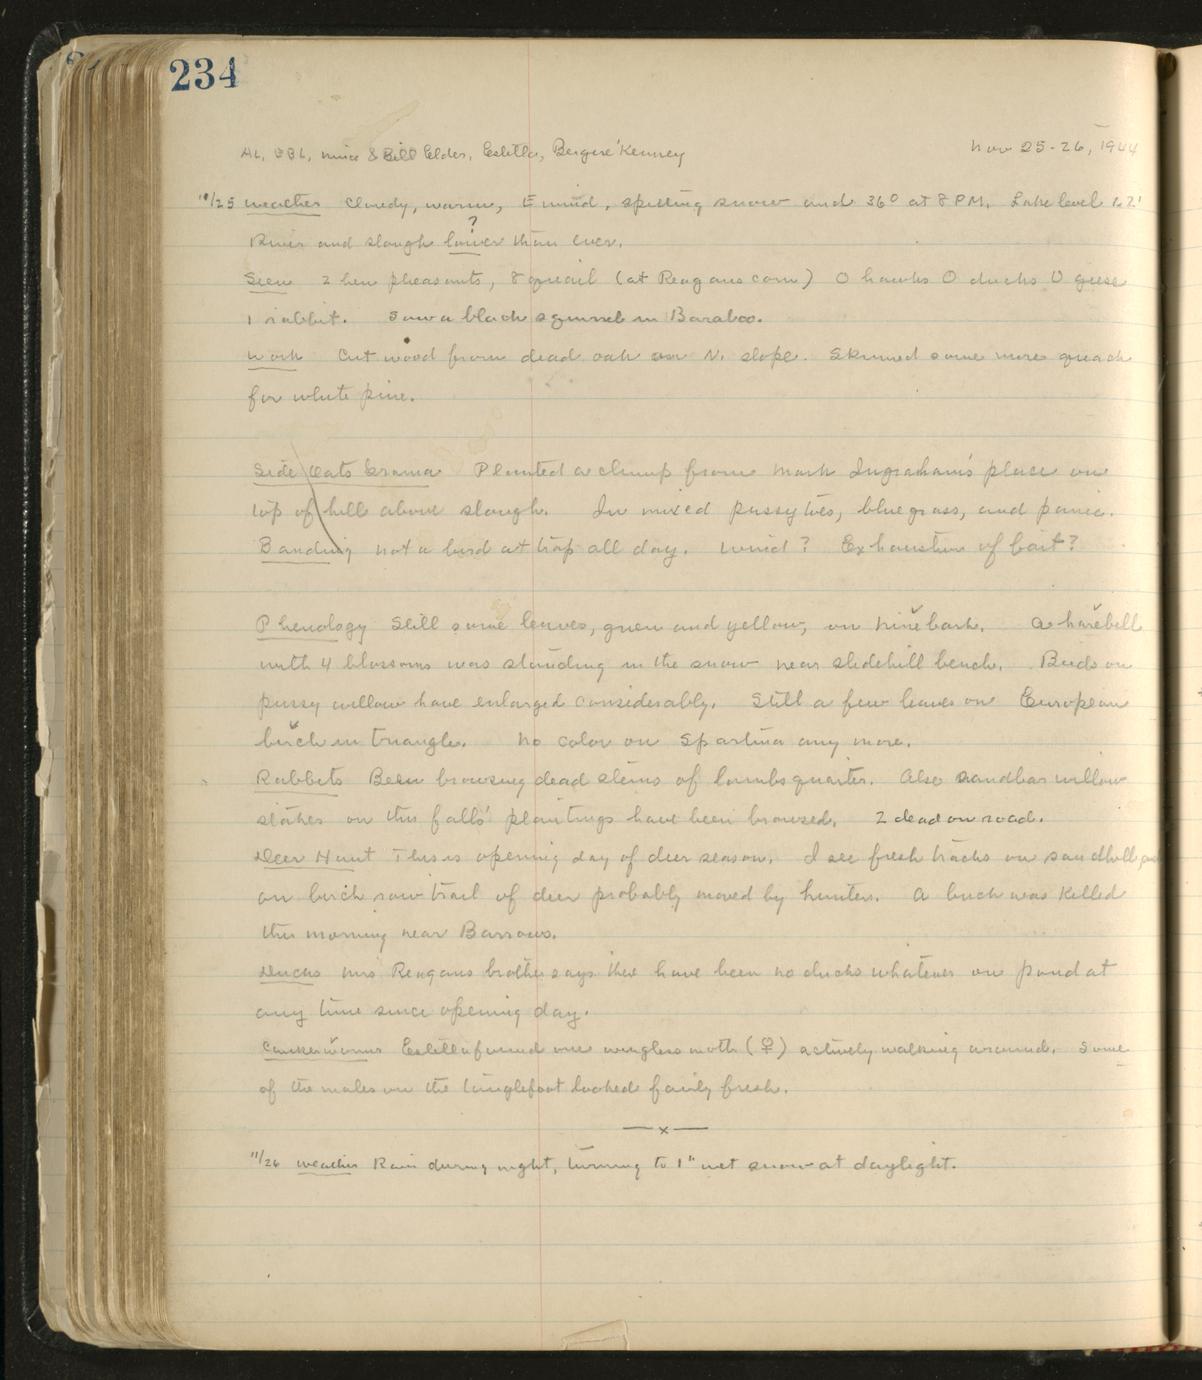 234
AL, EBL, Nina & Bill Elder, Estella, Bergere Kenney Nov 25-26, 1944
11/25 Weather Cloudy, warm, E wind, spitting snow and 36° at 8 PM. Lake level 1.2'
?
River and slough lower than ever.
Seen 2 hen pheasants, 8 quail (at Reagans corn) 0 hawks 0 ducks 0 geese
1 rabbit. Saw a black squirrel in Baraboo.
Work Cut wood from dead oak on N. slope. Skinned some more quack
for white pine.
Side Oats Grama Planted a clump from Mark Ingraham's place on
top of hill above slough. In mixed pussytoes, bluegrass, and panic.
Banding not a bird at trap all day. Wind? Exhaustion of bait?
Phenology Still some leaves, green and yellow, on ninebark. A harebell
with 4 blossoms was standing in the snow near slidehill bench. Buds on
pussy willow have enlarged considerably. Still a few leaves on European
birch in triangle. No color on Spartina any more.
Rabbits Been browsing dead stems of lambsquarter. Also sandbar willow
stakes on this falls' plantings have been browsed. 2 dead on road.
Deer Hunt This is opening day of deer season. I see fresh tracks on sandhill and
on birch row trail of deer probably moved by hunters. A buck was killed
this morning near Barrows.
Ducks Mrs Reagans brother says there have been no ducks whatever on pond at
any time since opening day.
Cankerworms Estella found one wingless moth (♀) actively walking around. Some
of the males on the tanglefoot looked fairly fresh.
—x—
11/26 Weather Rain during night, turning to 1" wet snow at daylight.